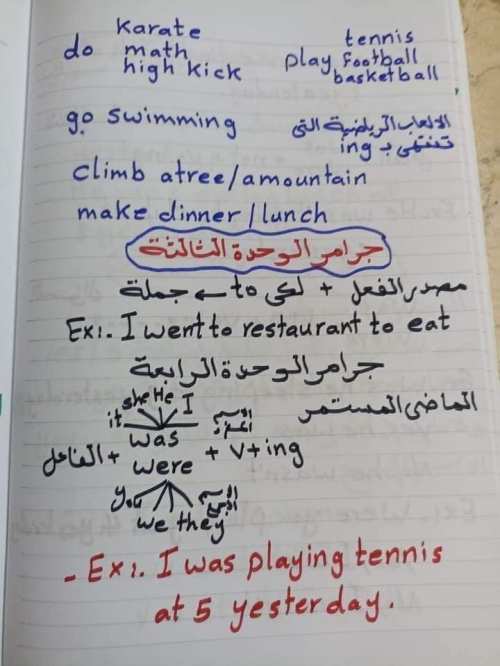 karate
do math
high kick
tennis
play football
basketball
go swimming
الالعاب الرياضية التى
تنتهى ب ing
climb a tree/a mountain
make dinner/lunch
جرامر الوحدة الثالثة
جملة ← to لكى + مصدر الفعل
Ex:- I went to restaurant to eat
جرامر الوحدة الرابعة
الماضى المستمر
it she He I الاسم المفرد
was
الفاعل + were + v+ing
you we they الاسم الجمع
- Ex:. I was playing tennis
at 5 yesterday.